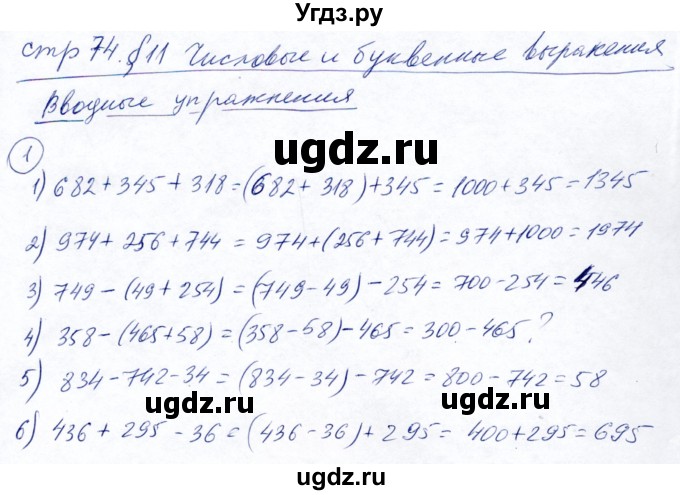 Угдз.ру
стр 74. §11 Числовые и буквенные выражения
Вводные упражнения
ugdz.ru
1
1) 682+345+318=(682+318)+345=1000+345=1345
ugdz.ru
2) 974+256+744=974+(256+744)=974+1000=1974
3) 749-(49+254)=(749-49)-254=700-254=446
ugdz.ru
4) 358-(465+58)=(358-58)-465=300-465?
5) 834-742-34=(834-34)-742=800-742=58
ugdz.ru ugdz.ru
6) 436+295-36=(436-36)+295=400+295=695
ugdz.ru